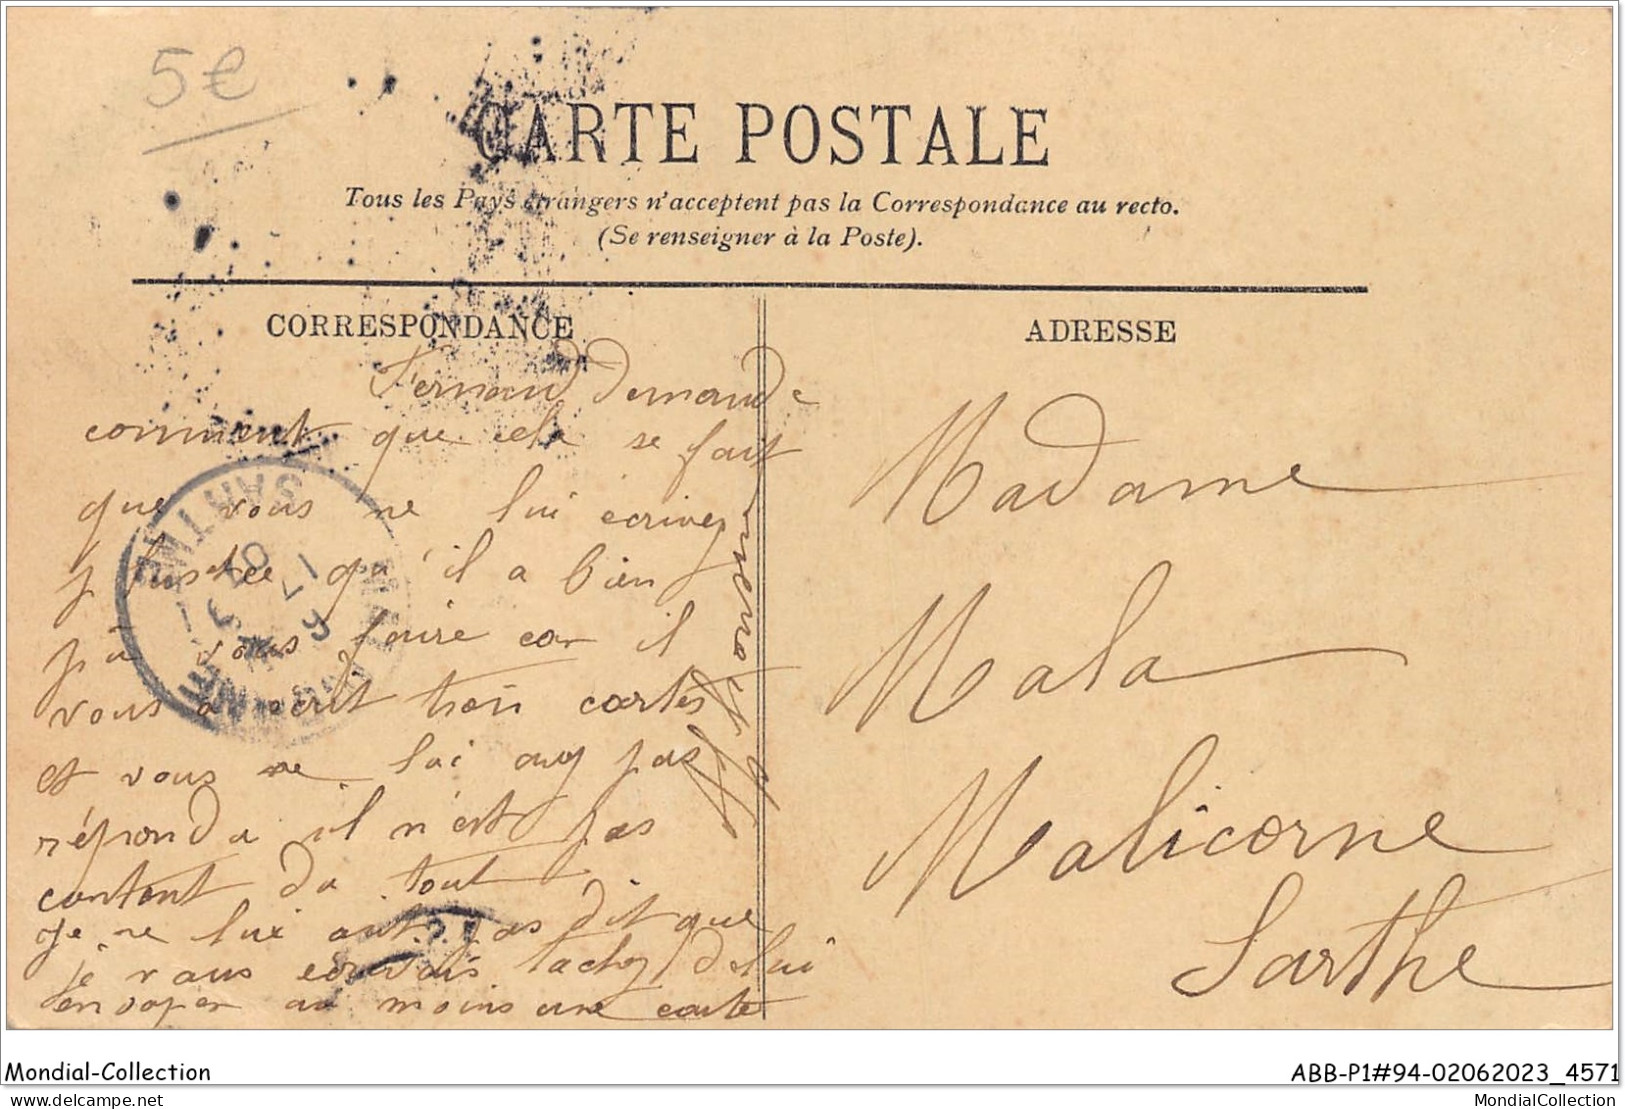 5€
CARTE POSTALE
Tous les Pays étrangers n'acceptent pas la Correspondance au recto.
(Se renseigner à la Poste).
CORRESPONDANCE
ADRESSE
Fernand demande
comment que cela se fait
que vous ne lui écrivez
pa
qu'il a bien
pu vous faire car il
vous a écrit trois cartes
et vous ne lui avez pas
réponda il n'est pas
content du tout
je ne lui ait pas dit que
je vous écrivais tachez de lui
envoyer au moins une carte
Madame
Mala
Malicorne
Sarthe
SARTHE
Mondial-Collection
ABB-P1#94-02062023_4571
delcampe.net
MondialCollection